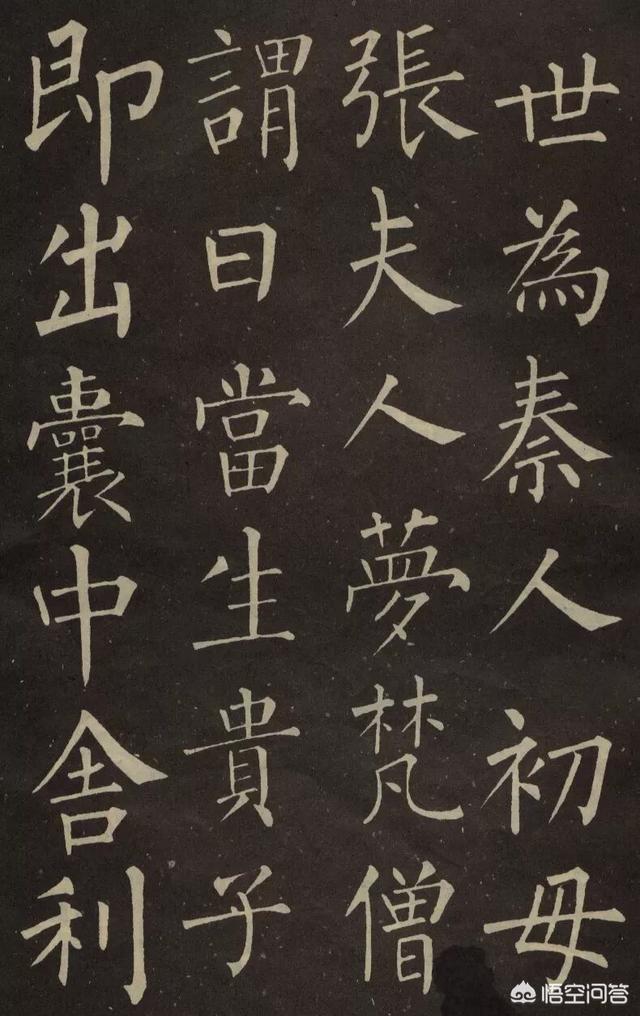 世為秦人初母
張夫人夢梵僧
謂曰當生貴子
即出囊中舍利
悟空问答